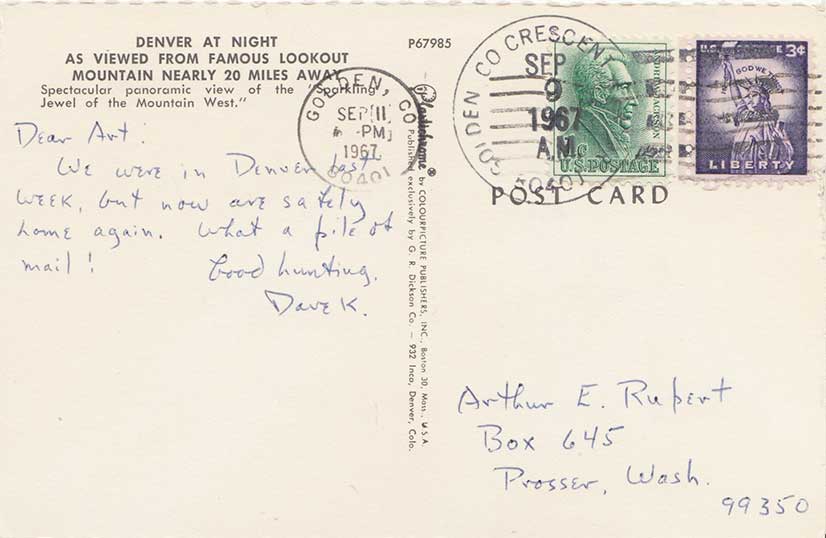 DENVER AT NIGHT
AS VIEWED FROM FAMOUS LOOKOUT
MOUNTAIN NEARLY 20 MILES AWAY
Spectacular panoramic view of the "Sparkling
Jewel of the Mountain West."
P67985
Dear Art:
We were in Denver last
week, but now are safely
home again. What a pile of
mail!
Good hunting.
Dave K.
GOLDEN, CO
SEP 11
PM
1967
80401
Plastichrome ® by COLOURPICTURE PUBLISHERS, INC., Boston 30, Mass., U.S.A.
Published exclusively by G. R. Dickson Co. – 932 Inca, Denver, Colo.
GOLDEN CO CRESCENT
SEP
9
1967
A.M.
80401
ANDREW JACKSON
1c
U.S. POSTAGE
U.S. POSTAGE 3¢
IN GOD WE TRUST
LIBERTY
POST CARD
Arthur E. Rupert
Box 645
Prosser, Wash.
99350